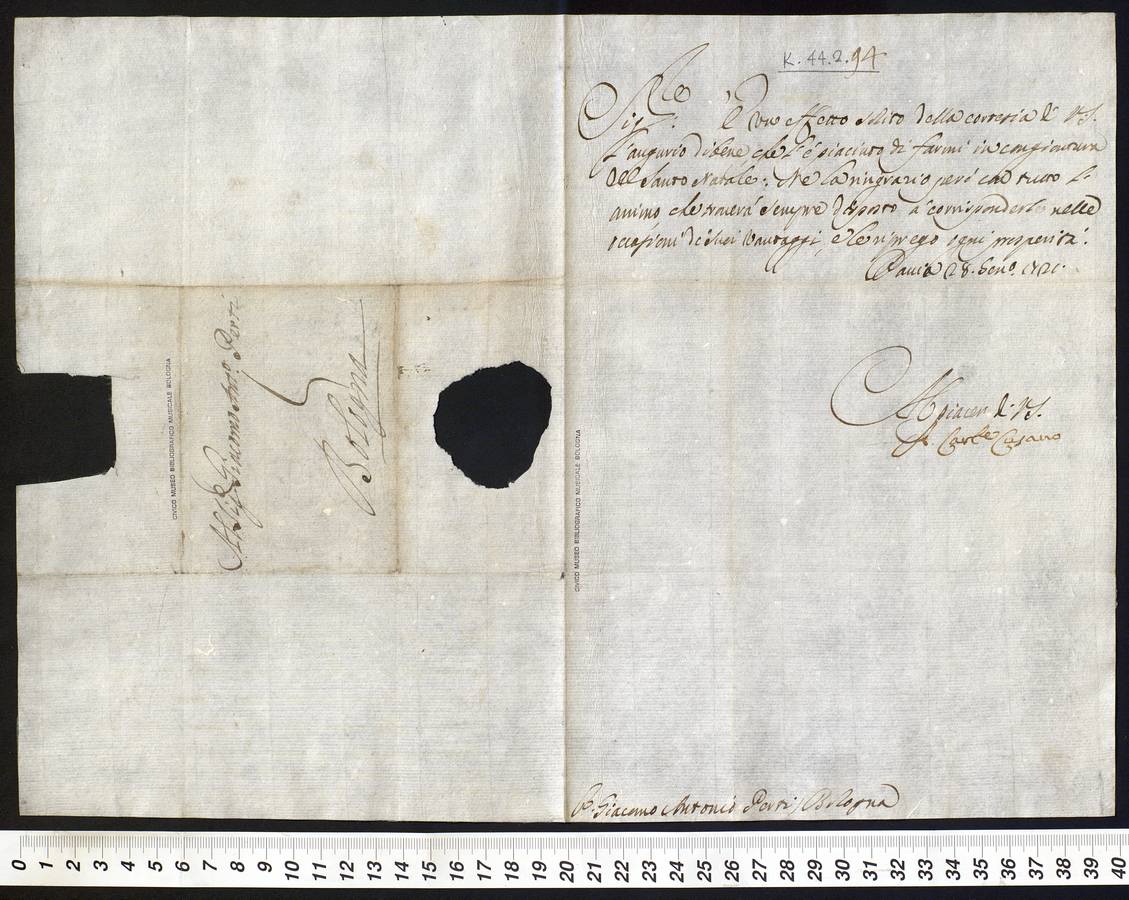 K. 44.2.94
Sig.re È un effetto solito della cortesia di VS.
l'augurio di bene, che l'è piaciuto di farmi in congiontura
del Santo Natale; Ne la ringrazio però con tutto l'
animo che troverà sempre disposto à corrisponderle nelle
occasioni de suoi vantaggi, e le riprego ogni prosperità.
Pavia 28. Gen.o 1721.
piaceri di VS.
Carlo
S. Giacomo Antonio Perti / Bologna
Al Sig.r Giacomo Ant.o Perti
Bologna
CIVICO MUSEO BIBLIOGRAFICO MUSICALE BOLOGNA
CIVICO MUSEO BIBLIOGRAFICO MUSICALE BOLOGNA
0 1 2 3 4 5 6 7 8 9 10 11 12 13 14 15 16 17 18 19 20 21 22 23 24 25 26 27 28 29 30 31 32 33 34 35 36 37 38 39 40